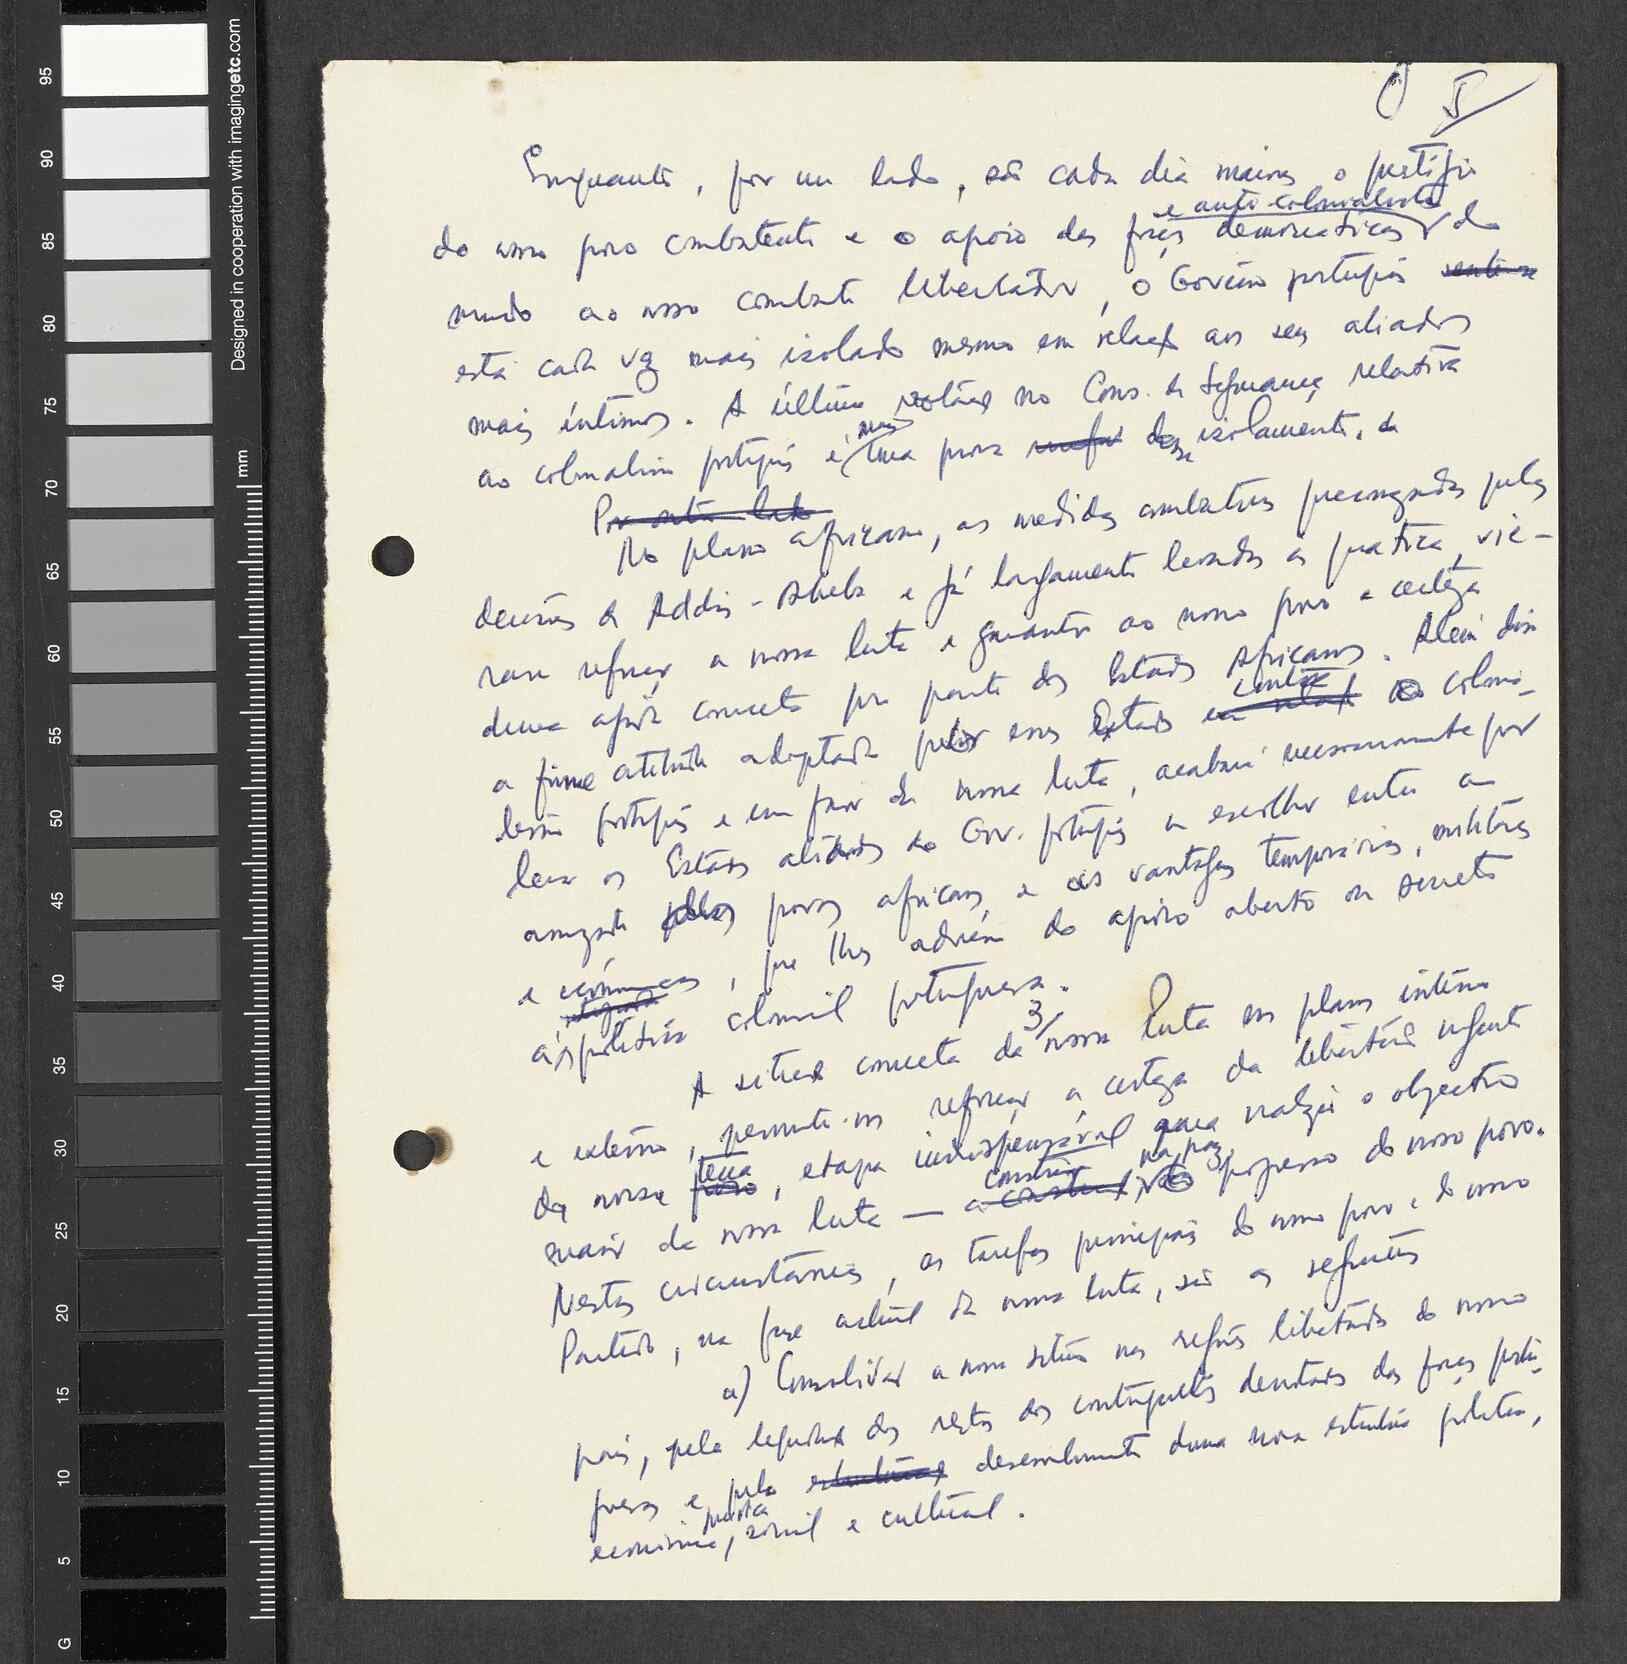 5
Enquanto, por um lado, são cada dia maiores o prestígio
e anti-colonialistas
do nosso povo combatente e o apoio das forças democráticas do
mundo ao nosso combate libertador, o Governo português
está cada vez mais isolado mesmo em relação aos seus aliados
mais íntimos. A última votação no Cons. de Segurança, relativa
mais
ao colonialismo português é uma prova desse isolamento.
Por outro lado
No plano africano, as medidas combativas preconizadas pelas
decisões de Addis-Abeba e já largamente levadas à prática, vie-
ram reforçar a nossa luta e garantir ao nosso povo a certeza
duma ajuda concreta por parte dos Estados Africanos. Além disso
contra
a firme atitude adoptada por esses Estados em relação ao colonia-
lismo português e em favor da nossa luta, acabará necessariamente por
levar os Estados aliados do Gov. português a escolher entre a
amizade pelos povos africanos e as vantagens temporárias, militares
e económicas, que lhes advêm do apoio aberto ou secreto
à política colonial portuguesa.
3/
A situação concreta da nossa luta nos planos interno
e externo, permite-nos reforçar a certeza da libertação urgente
terra
da nossa povo, etapa indispensável para realizar o objectivo
construir na paz,
maior da nossa luta — o progresso do nosso povo.
Nestas circunstâncias, as tarefas principais do nosso povo e do nosso
Partido, na fase actual da nossa luta, são as seguintes
a) Consolidar a nossa situação nas regiões libertadas do nosso
país, pela liquidação dos restos dos contingentes derrotados das forças portu-
guesas e pelo desenvolvimento duma nova estrutura política,
económica, social e cultural.
Designed in cooperation with imagingetc.com
mm
95
90
85
80
75
70
65
60
55
50
45
40
35
30
25
20
15
10
5
G